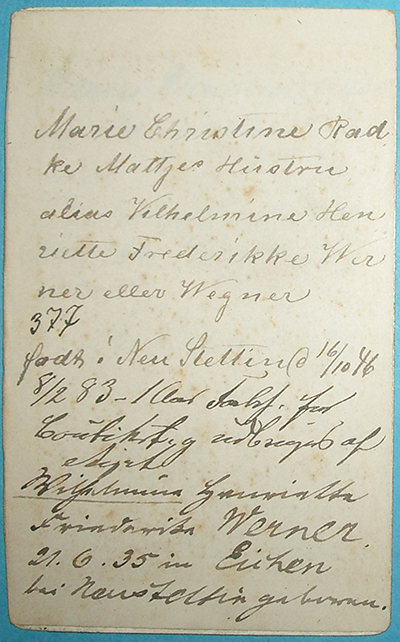 Marie Christine Rad
ke Mattjes Hustru
alias Vilhelmine Hen
riette Frederikke Wer
ner eller Wegner
377
født i Neu Stettin d 16/10 46
8/2 83 - 1 Aar Forbh. for
af
Wilhelmina Henriette
Friederike Werner
21.6.35 in Eichen
bei Neustettin geboren.